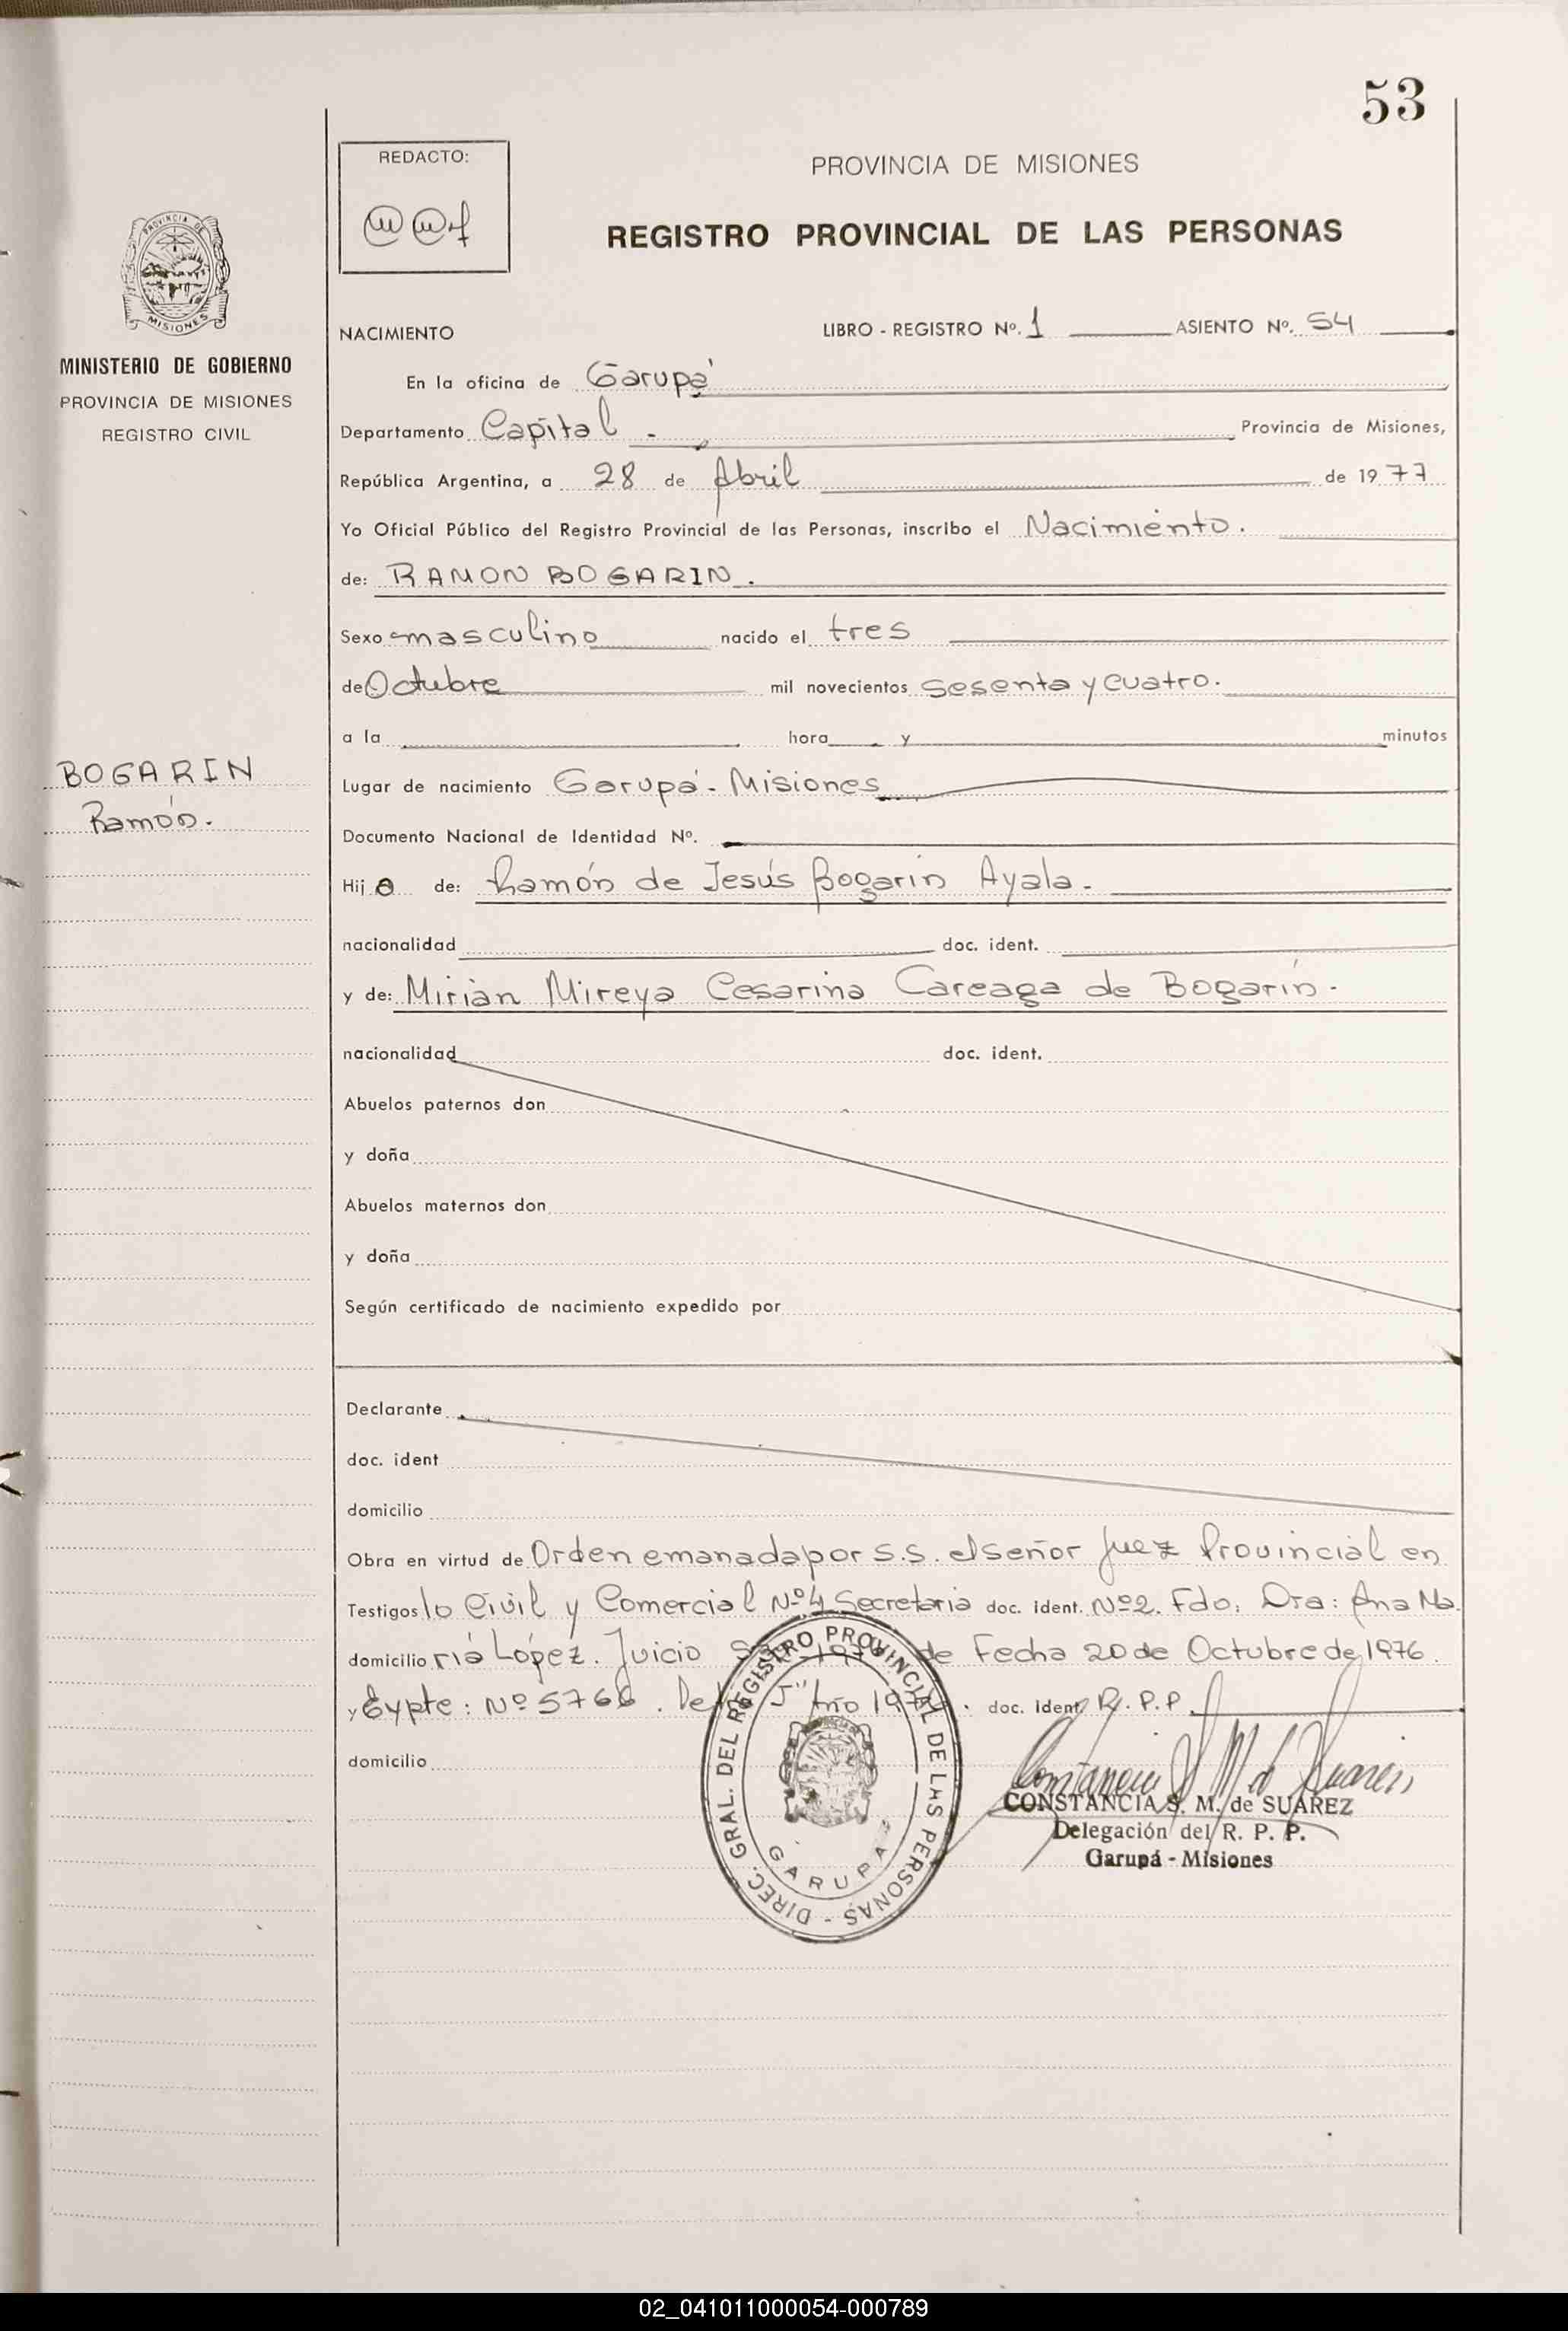 53
REDACTO:
PROVINCIA DE MISIONES
REGISTRO PROVINCIAL DE LAS PERSONAS
PROVINCIA DE
MISIONES
MINISTERIO DE GOBIERNO
PROVINCIA DE MISIONES
REGISTRO CIVIL
BOGARIN
Ramón.
NACIMIENTO LIBRO - REGISTRO Nº. 1 ASIENTO Nº. 54
En la oficina de Garupá
Departamento Capital - Provincia de Misiones,
República Argentina, a 28 de Abril de 1977
Yo Oficial Público del Registro Provincial de las Personas, inscribo el Nacimiento.
de: RAMON BOGARIN.
Sexo masculino nacido el tres
de Octubre mil novecientos sesenta y cuatro.
a la hora y minutos
Lugar de nacimiento Garupá - Misiones
Documento Nacional de Identidad Nº.
Hijo de: Ramón de Jesús Bogarín Ayala.
nacionalidad doc. ident.
y de: Mirian Mireya Cesarina Careaga de Bogarín.
nacionalidad doc. ident.
Abuelos paternos don
y doña
Abuelos maternos don
y doña
Según certificado de nacimiento expedido por
Declarante
doc. ident
domicilio
Obra en virtud de Orden emanada por S.S. el señor Juez Provincial en
Testigos lo Civil y Comercial Nº4 Secretaria doc. ident. Nº2. Fdo. Dra: Ana Ma
domicilio ría López. Juicio de Fecha 20 de Octubre de 1976.
y Expte: Nº 5766. "J" Año doc. ident. R.P.P.
domicilio
DIREC. GRAL. DEL REGISTRO PROVINCIAL DE LAS PERSONAS -
GARUPA
CONSTANCIA S. M. de SUAREZ
Delegación del R. P. P.
Garupá - Misiones
02_041011000054-000789